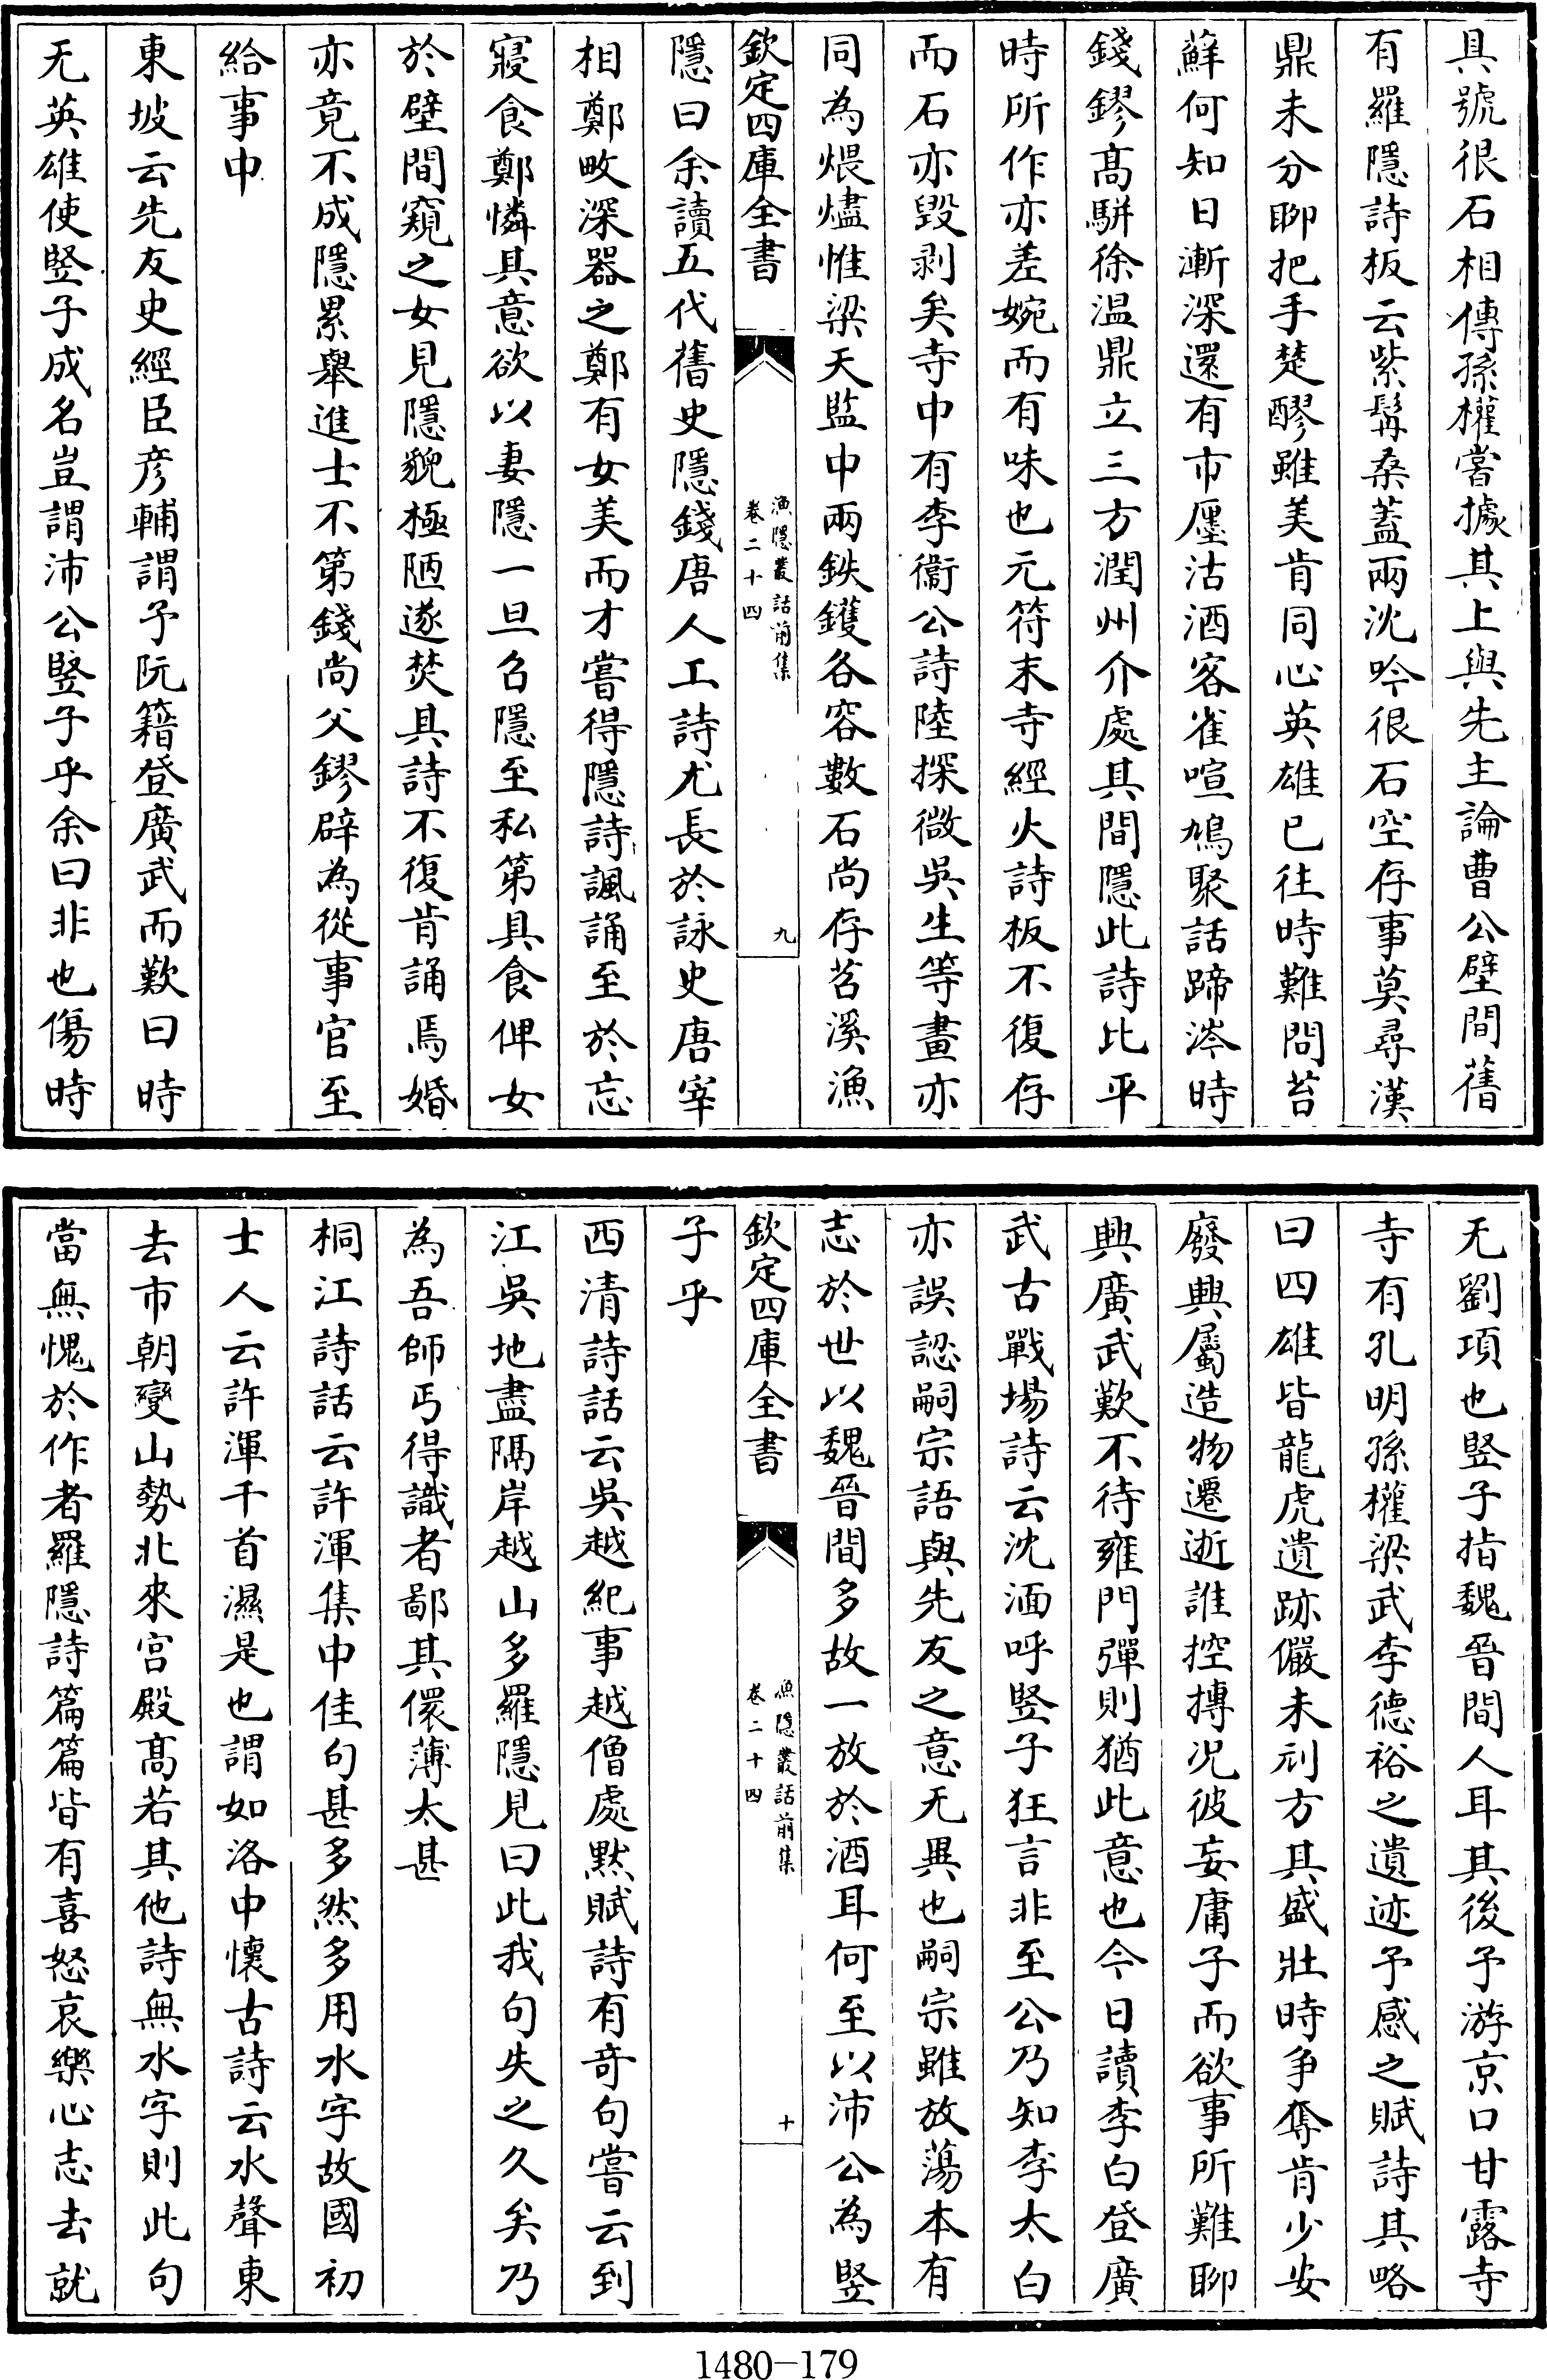 具號很石相傳孫權嘗據其上與先主論曹公壁間舊
有羅隱詩板云紫髯桑蓋兩沈吟很石空存事莫尋漢
鼎未分聊把手楚醪雖美肯同心英雄已往時難問苔
蘚何知日漸深還有市廛沽酒客雀喧鳩聚話蹄涔時
錢鏐髙駢徐温鼎立三方潤州介處其間隱此詩比平
時所作亦差婉而有味也元符末寺經火詩板不復存
而石亦毀剥矣寺中有李衞公詩陸探微吳生等畫亦
同為煨燼惟梁天監中兩鉄鑊各容數石尚存苕溪漁
欽定四庫全書
漁隱叢話前集
卷二十四
九
隱曰余讀五代舊史隱錢唐人工詩尤長於詠史唐宰
相鄭畋深器之鄭有女美而才嘗得隱詩諷誦至於忘
寢食鄭憐其意欲以妻隱一旦召隱至私第具食俾女
於壁間窺之女見隱貌極陋遂焚其詩不復肯誦焉婚
亦竟不成隱累舉進士不第錢尚父鏐辟為從事官至
給事中
東坡云先友史經臣彦輔謂予阮籍登廣武而歎曰時
无英雄使竪子成名豈謂沛公竪子乎余曰非也傷時
无劉項也竪子指魏晉間人耳其後予游京口甘露寺
寺有孔明孫權梁武李德裕之遺迹予感之賦詩其略
曰四雄皆龍虎遺跡儼未刓方其盛壯時争奪肯少安
廢興屬造物遷逝誰控摶况彼妄庸子而欲事所難聊
興廣武歎不待雍門彈則猶此意也今日讀李白登廣
武古戰場詩云沈湎呼竪子狂言非至公乃知李太白
亦誤認嗣宗語與先友之意无異也嗣宗雖放蕩本有
志於世以魏晉間多故一放於酒耳何至以沛公為竪
欽定四庫全書
漁隱叢話前集
卷二十四
十
子乎
西清詩話云吳越紀事越僧處黙賦詩有奇句嘗云到
江吳地盡隔岸越山多羅隱見曰此我句失之久矣乃
為吾師丐得識者鄙其儇薄太甚
桐江詩話云許渾集中佳句甚多然多用水字故國初
士人云許渾千首濕是也謂如洛中懷古詩云水聲東
去市朝變山勢北來宫殿髙若其他詩無水字則此句
當無愧於作者羅隱詩篇篇皆有喜怒哀樂心志去就
1480-179